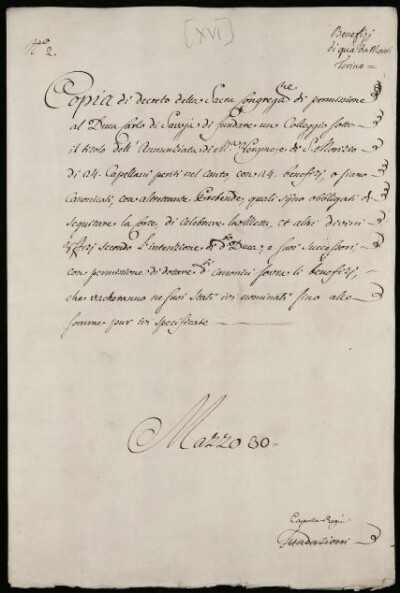 [XVI]
N.o 2.
Benefizj
di quà da Monti
Torino
Copia di decreto della Sacra Congreg.ne di permissione
al Duca Carlo di Savoja di fundare un Colleggio sotto
il titolo dell'Annunziata di M.a Vergine, e di S. Morizio
di 24. Capellani periti nel canto, con 24. benefizj, o siano
Canonicati, con altretante Prebende, quali sijno obbligati di
seguitare la Corte, di celebrare la Messa, et altri divini
Uffizj secondo l'intenzione di d.o Duca, e suoi Successori,
con permissione di dotare d.i Canonici sovra li benefizj,
che vacheranno ne suoi Stati ivi nominati sino alle
somme pur ivi specificate
Mazzo 30
Cappella Regia
Fundazioni